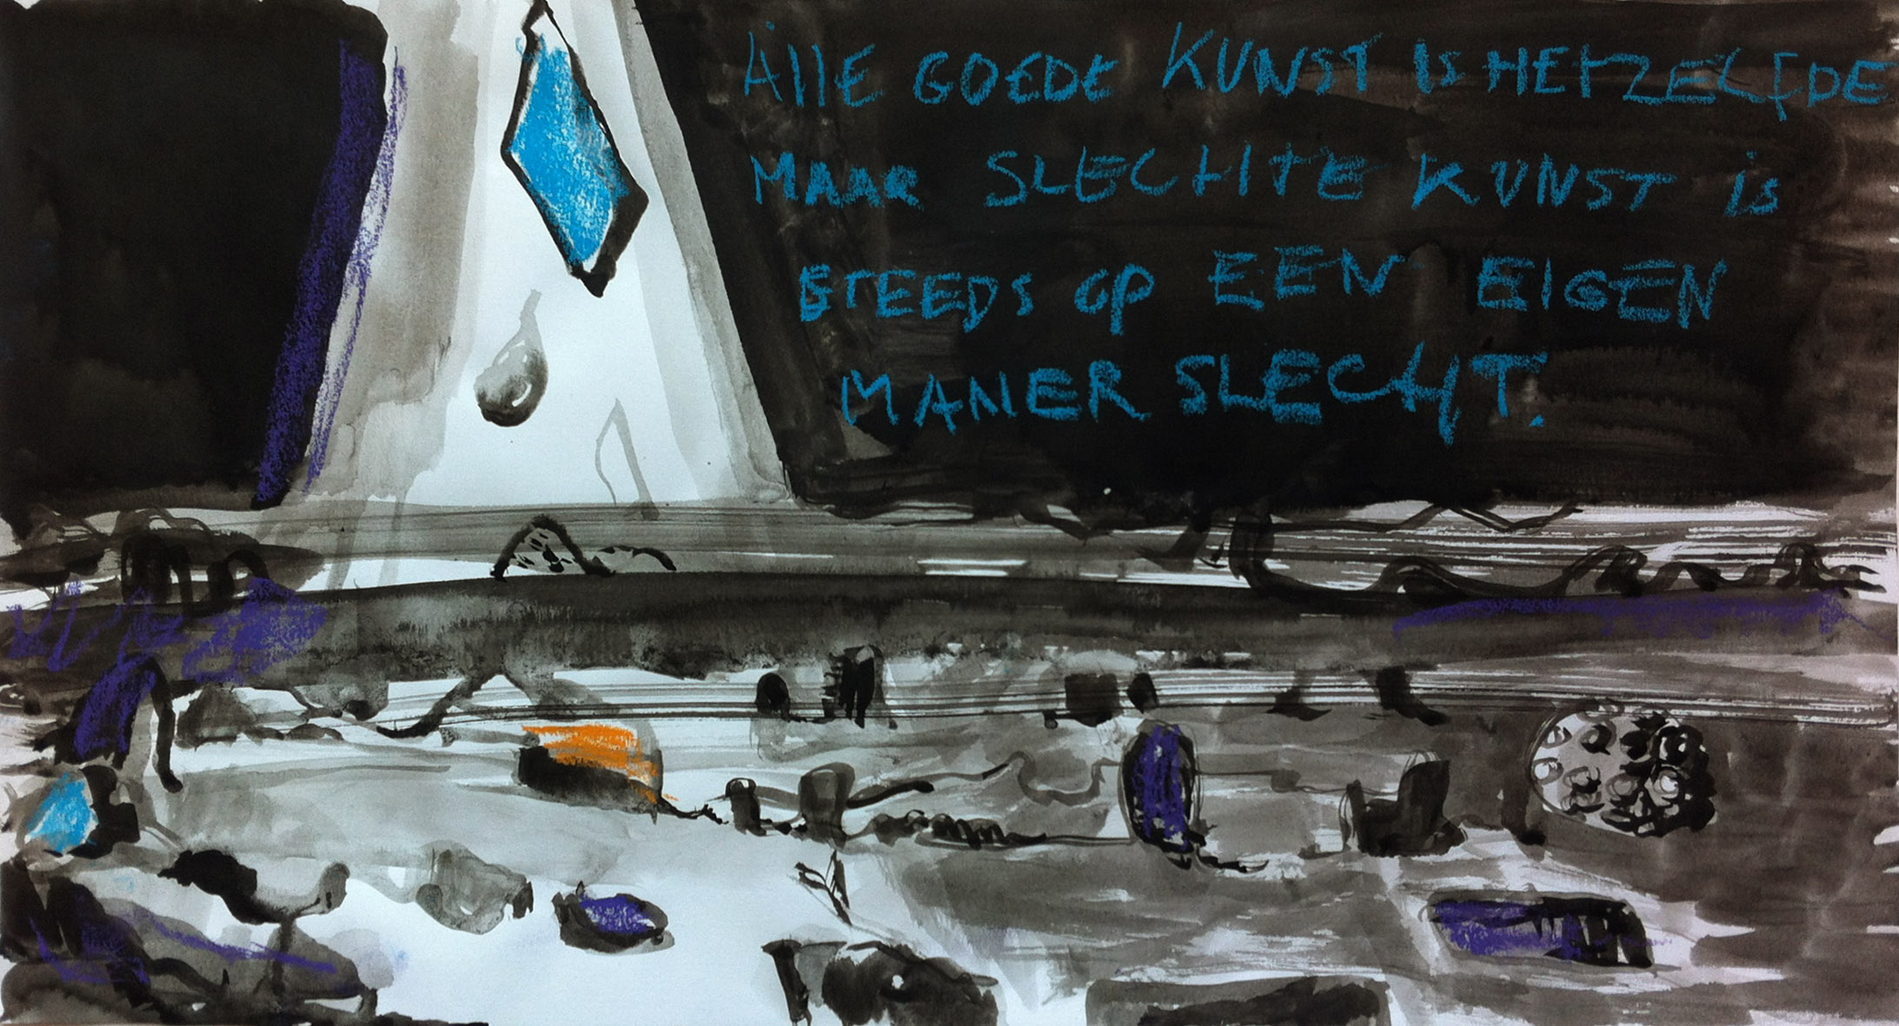 AllE GOEDE KUNST IS HETZELFDE
MAAR SLECHTE KUNST is
STEEDS OP EEN EIGEN
MANIER SLECHT.